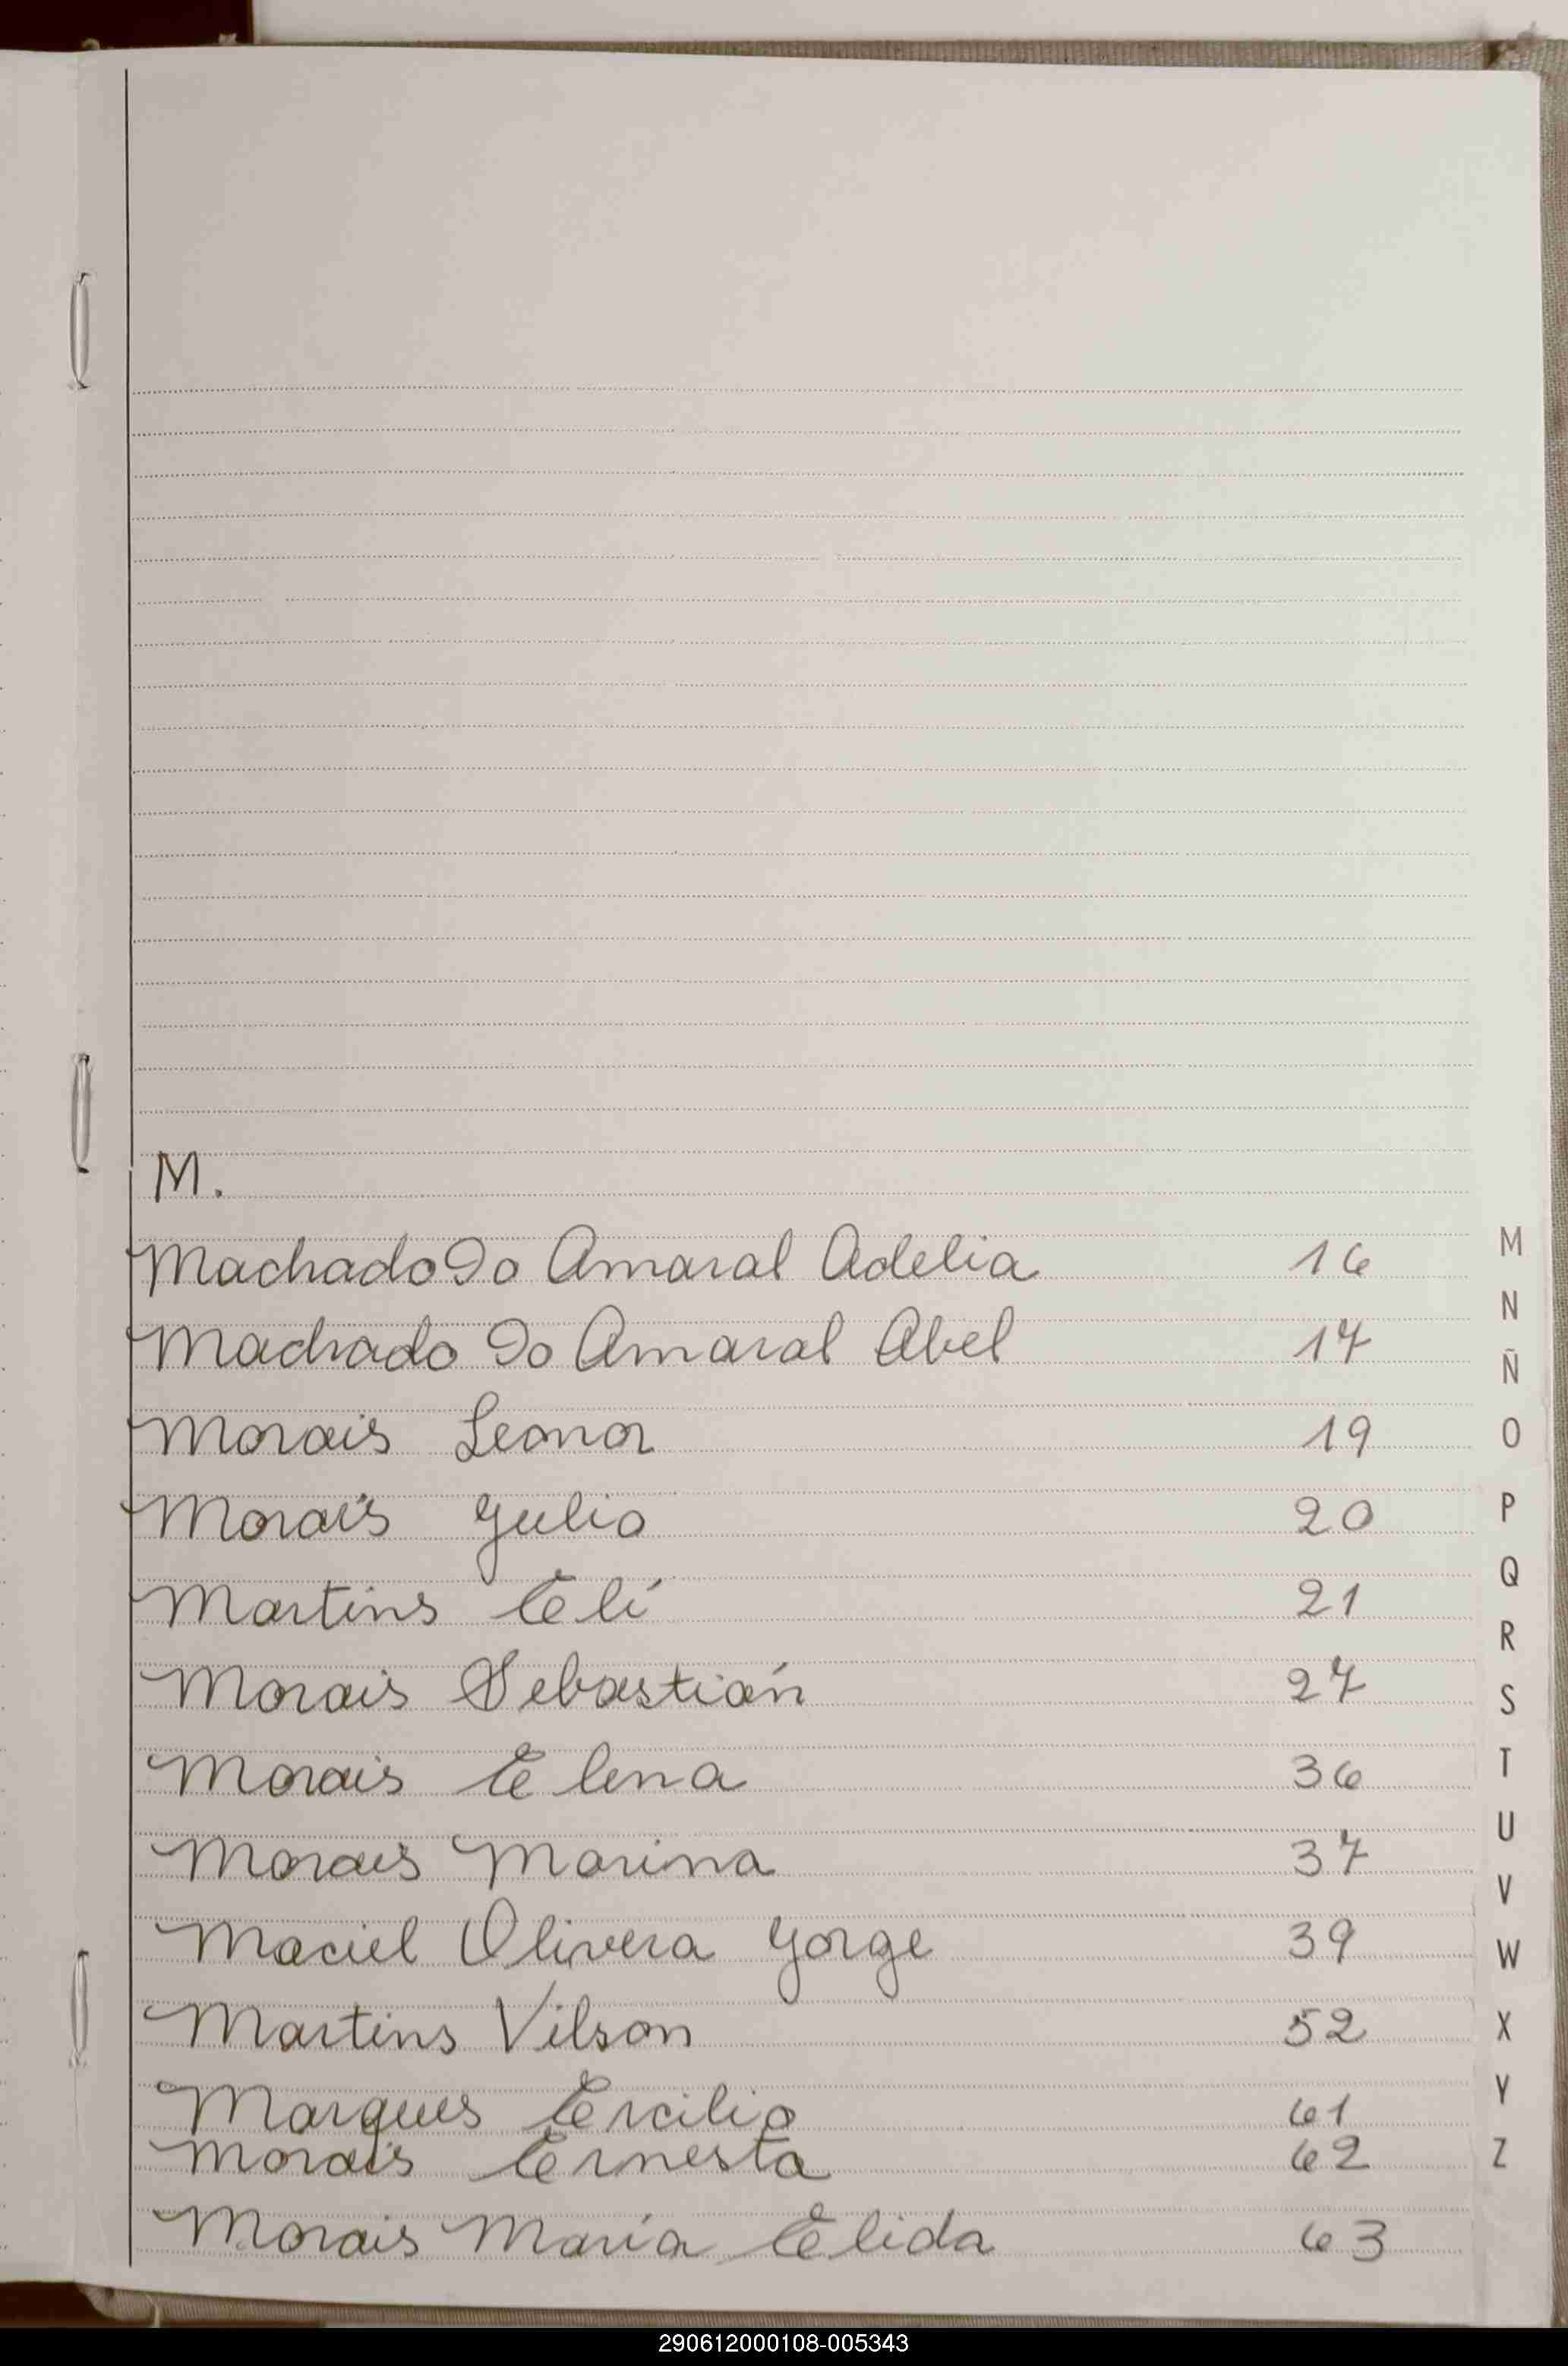 M.
Machado Do Amaral Adelia 16
Machado Do Amaral Abel 17
Morais Leonor 19
Morais Julio 20
Martins Elí 21
Morais Sebastián 27
Morais Elena 36
Morais Marina 37
Maciel Olivera Jorge 39
Martins Vilson 52
Marques Ercilio 61
Morais Ernesta 62
Morais María Elida 63
M
N
Ñ
O
P
Q
R
S
T
U
V
W
X
Y
Z
290612000108-005343